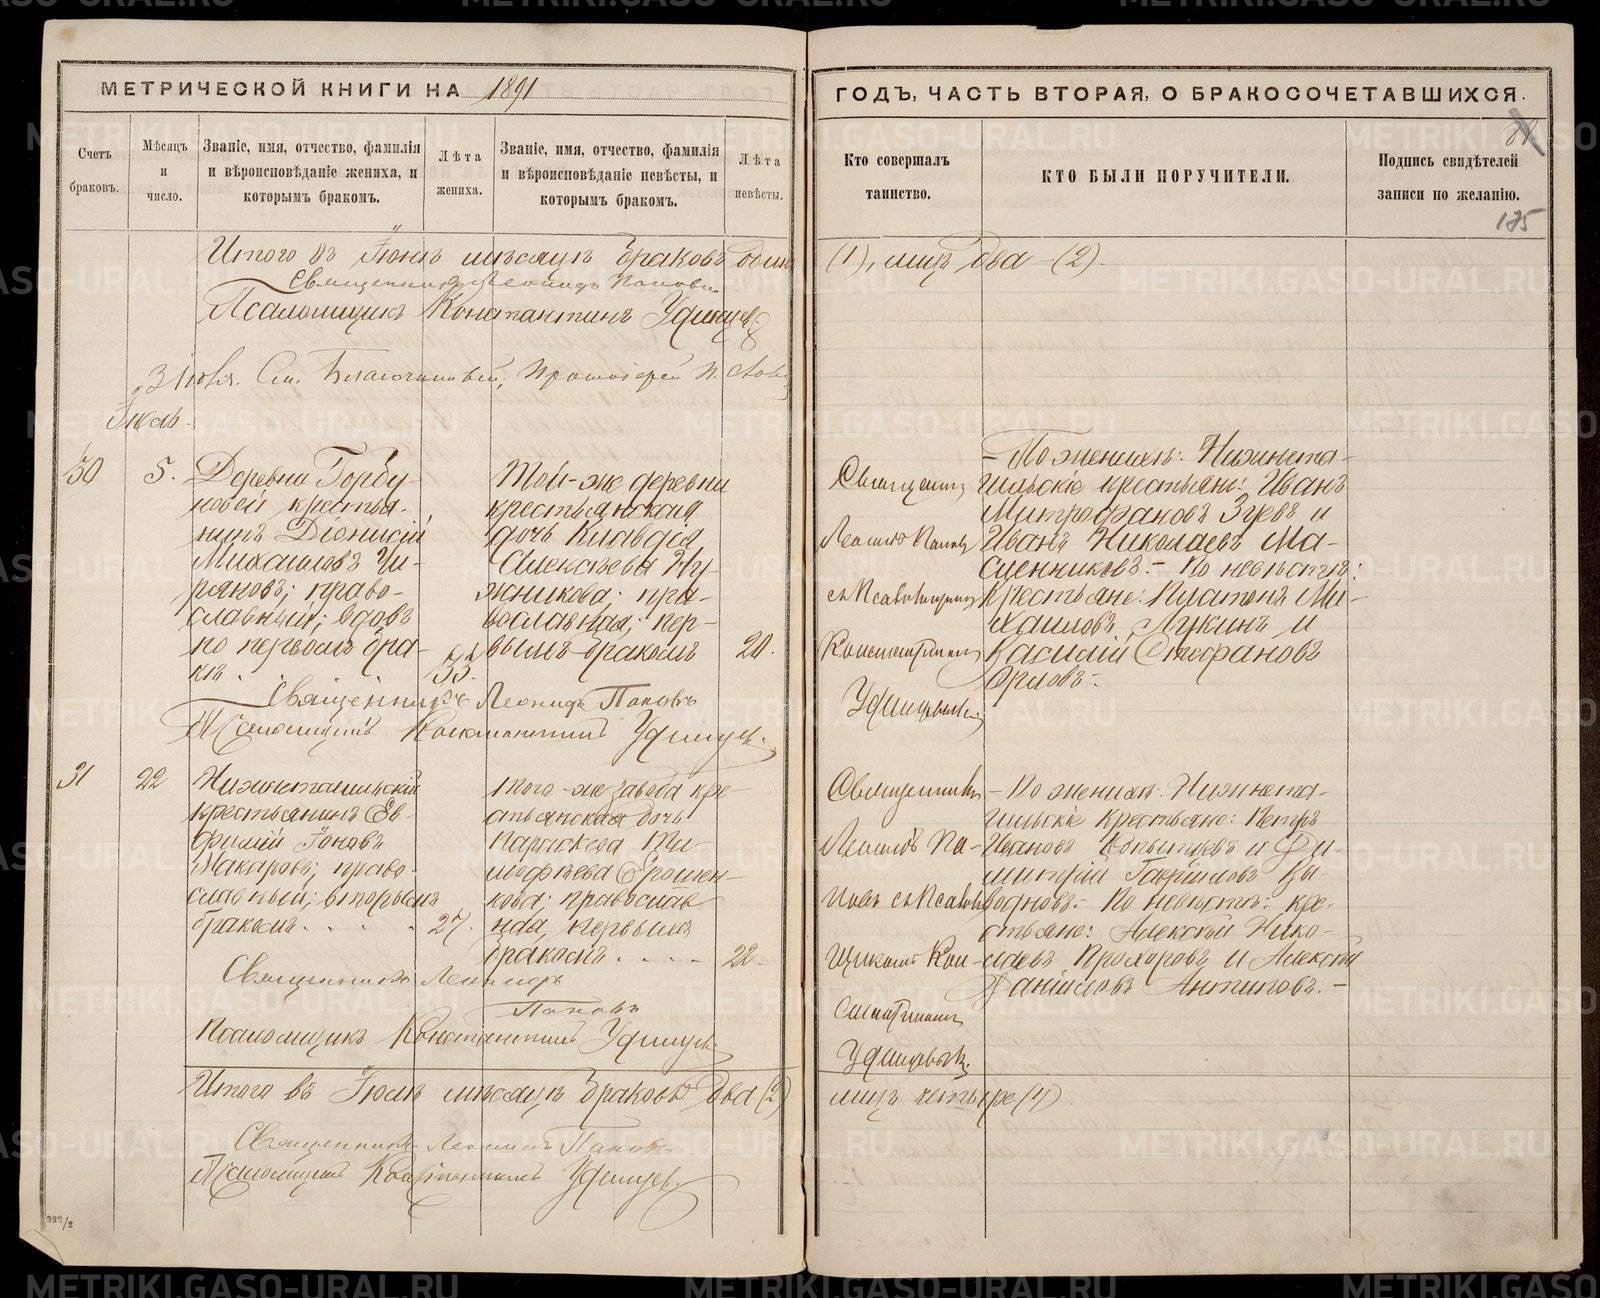 МЕТРИЧЕСКОЙ КНИГИ НА 1891
ГОДЪ, ЧАСТЬ ВТОРАЯ, О БРАКОСОЧЕТАВШИХСЯ.
Счетъ браковъ.
Мѣсяцъ и число.
Званіе, имя, отчество, фамилія
и вѣроисповѣданіе жениха, и
которымъ бракомъ.
Лѣта
жениха.
Званіе, имя, отчество, фамилія
и вѣроисповѣданіе невѣсты, и
которымъ бракомъ.
Лѣта
невѣсты.
Кто совершалъ
таинство.
КТО БЫЛИ ПОРУЧИТЕЛИ.
Подпись свидѣтелей
записи по желанію.
175
Итого въ Іюнѣ мѣсяцѣ браковъ одинъ (1), лицъ два (2).
Священникъ Леонидъ Поповъ
Псаломщикъ Константинъ Удинцевъ
3 Іюля. См. Благочинный, Протоіерей П.
Іюль.
30
5.
Деревни Горбу-
новой крестья-
нинъ Діонисій
Михаиловъ Чи-
ряновъ; право-
славный; вдовъ
по первомъ бра-
кѣ.
33.
Той-же деревни
крестьянская
дочь Клавдія
Алексѣева Лу-
жникова; пра-
вославная; пер-
вымъ бракомъ
20.
Священникъ
Леонидъ Поповъ
съ Псаломщикомъ
Константиномъ
Удинцевымъ.
- По женихѣ: Нижнета-
гильскіе крестьяне: Иванъ
Митрофановъ Зуевъ и
Иванъ Николаевъ Ма-
сленниковъ. - По невѣстѣ:
Крестьяне: Платонъ Ми-
хаиловъ Лукинъ и
Василій Стефановъ
Орловъ.-
Священникъ Леонидъ Поповъ
Псаломщикъ Константинъ Удинцевъ.
31
22
Нижнетагильскій
крестьянинъ Ев-
фимій Іоновъ
Макаровъ; право-
славный; вторымъ
бракомъ. . . . .
27.
Того-же завода кре-
стьянская дочь
Параскева Ти-
моѳѣева Ерошен-
кова; православ-
ная; первымъ
бракомъ. . . . .
22.
Священникъ
Леонидъ По-
повъ съ Псалом-
щикомъ Кон-
стантиномъ
Удинцевымъ.
- По женихѣ: Нижнета-
гильскіе крестьяне: Петръ
Ивановъ Копытовъ и Ди-
митрій Гавріиловъ
По невѣстѣ: кре-
стьяне: Алексѣй Нико-
лаевъ Прохоровъ и Алексѣй
Даніиловъ Антиповъ.-
Священникъ Леонидъ
Поповъ
Псаломщикъ Константинъ Удинцевъ.
Итого въ Іюлѣ мѣсяцѣ браковъ два (2) лицъ четыре (4).
Священникъ Леонидъ Поповъ
Псаломщикъ Константинъ Удинцевъ.
322/2
METRIKI.GASO-URAL.RU